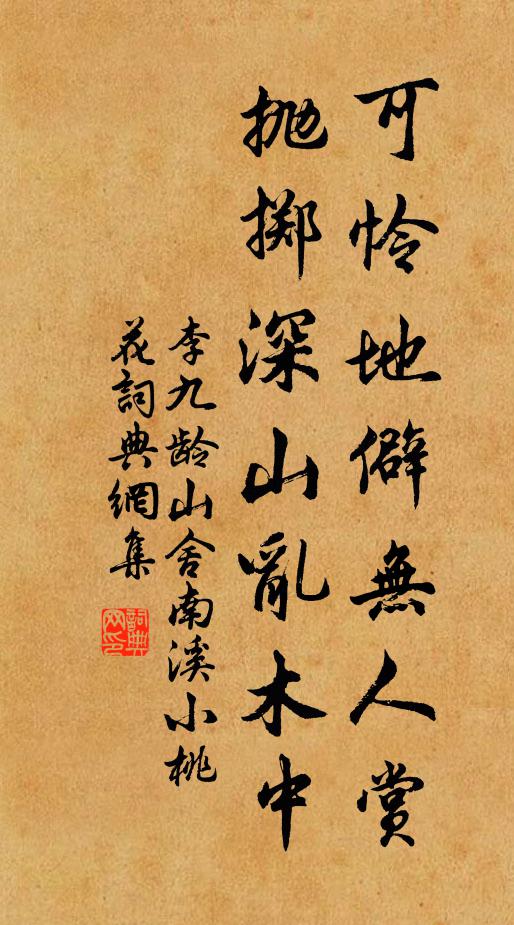 可怜地僻無人赏
抛掷深山亂木中
李九龄山舍南溪小桃
花詞典網集
詞典
网印